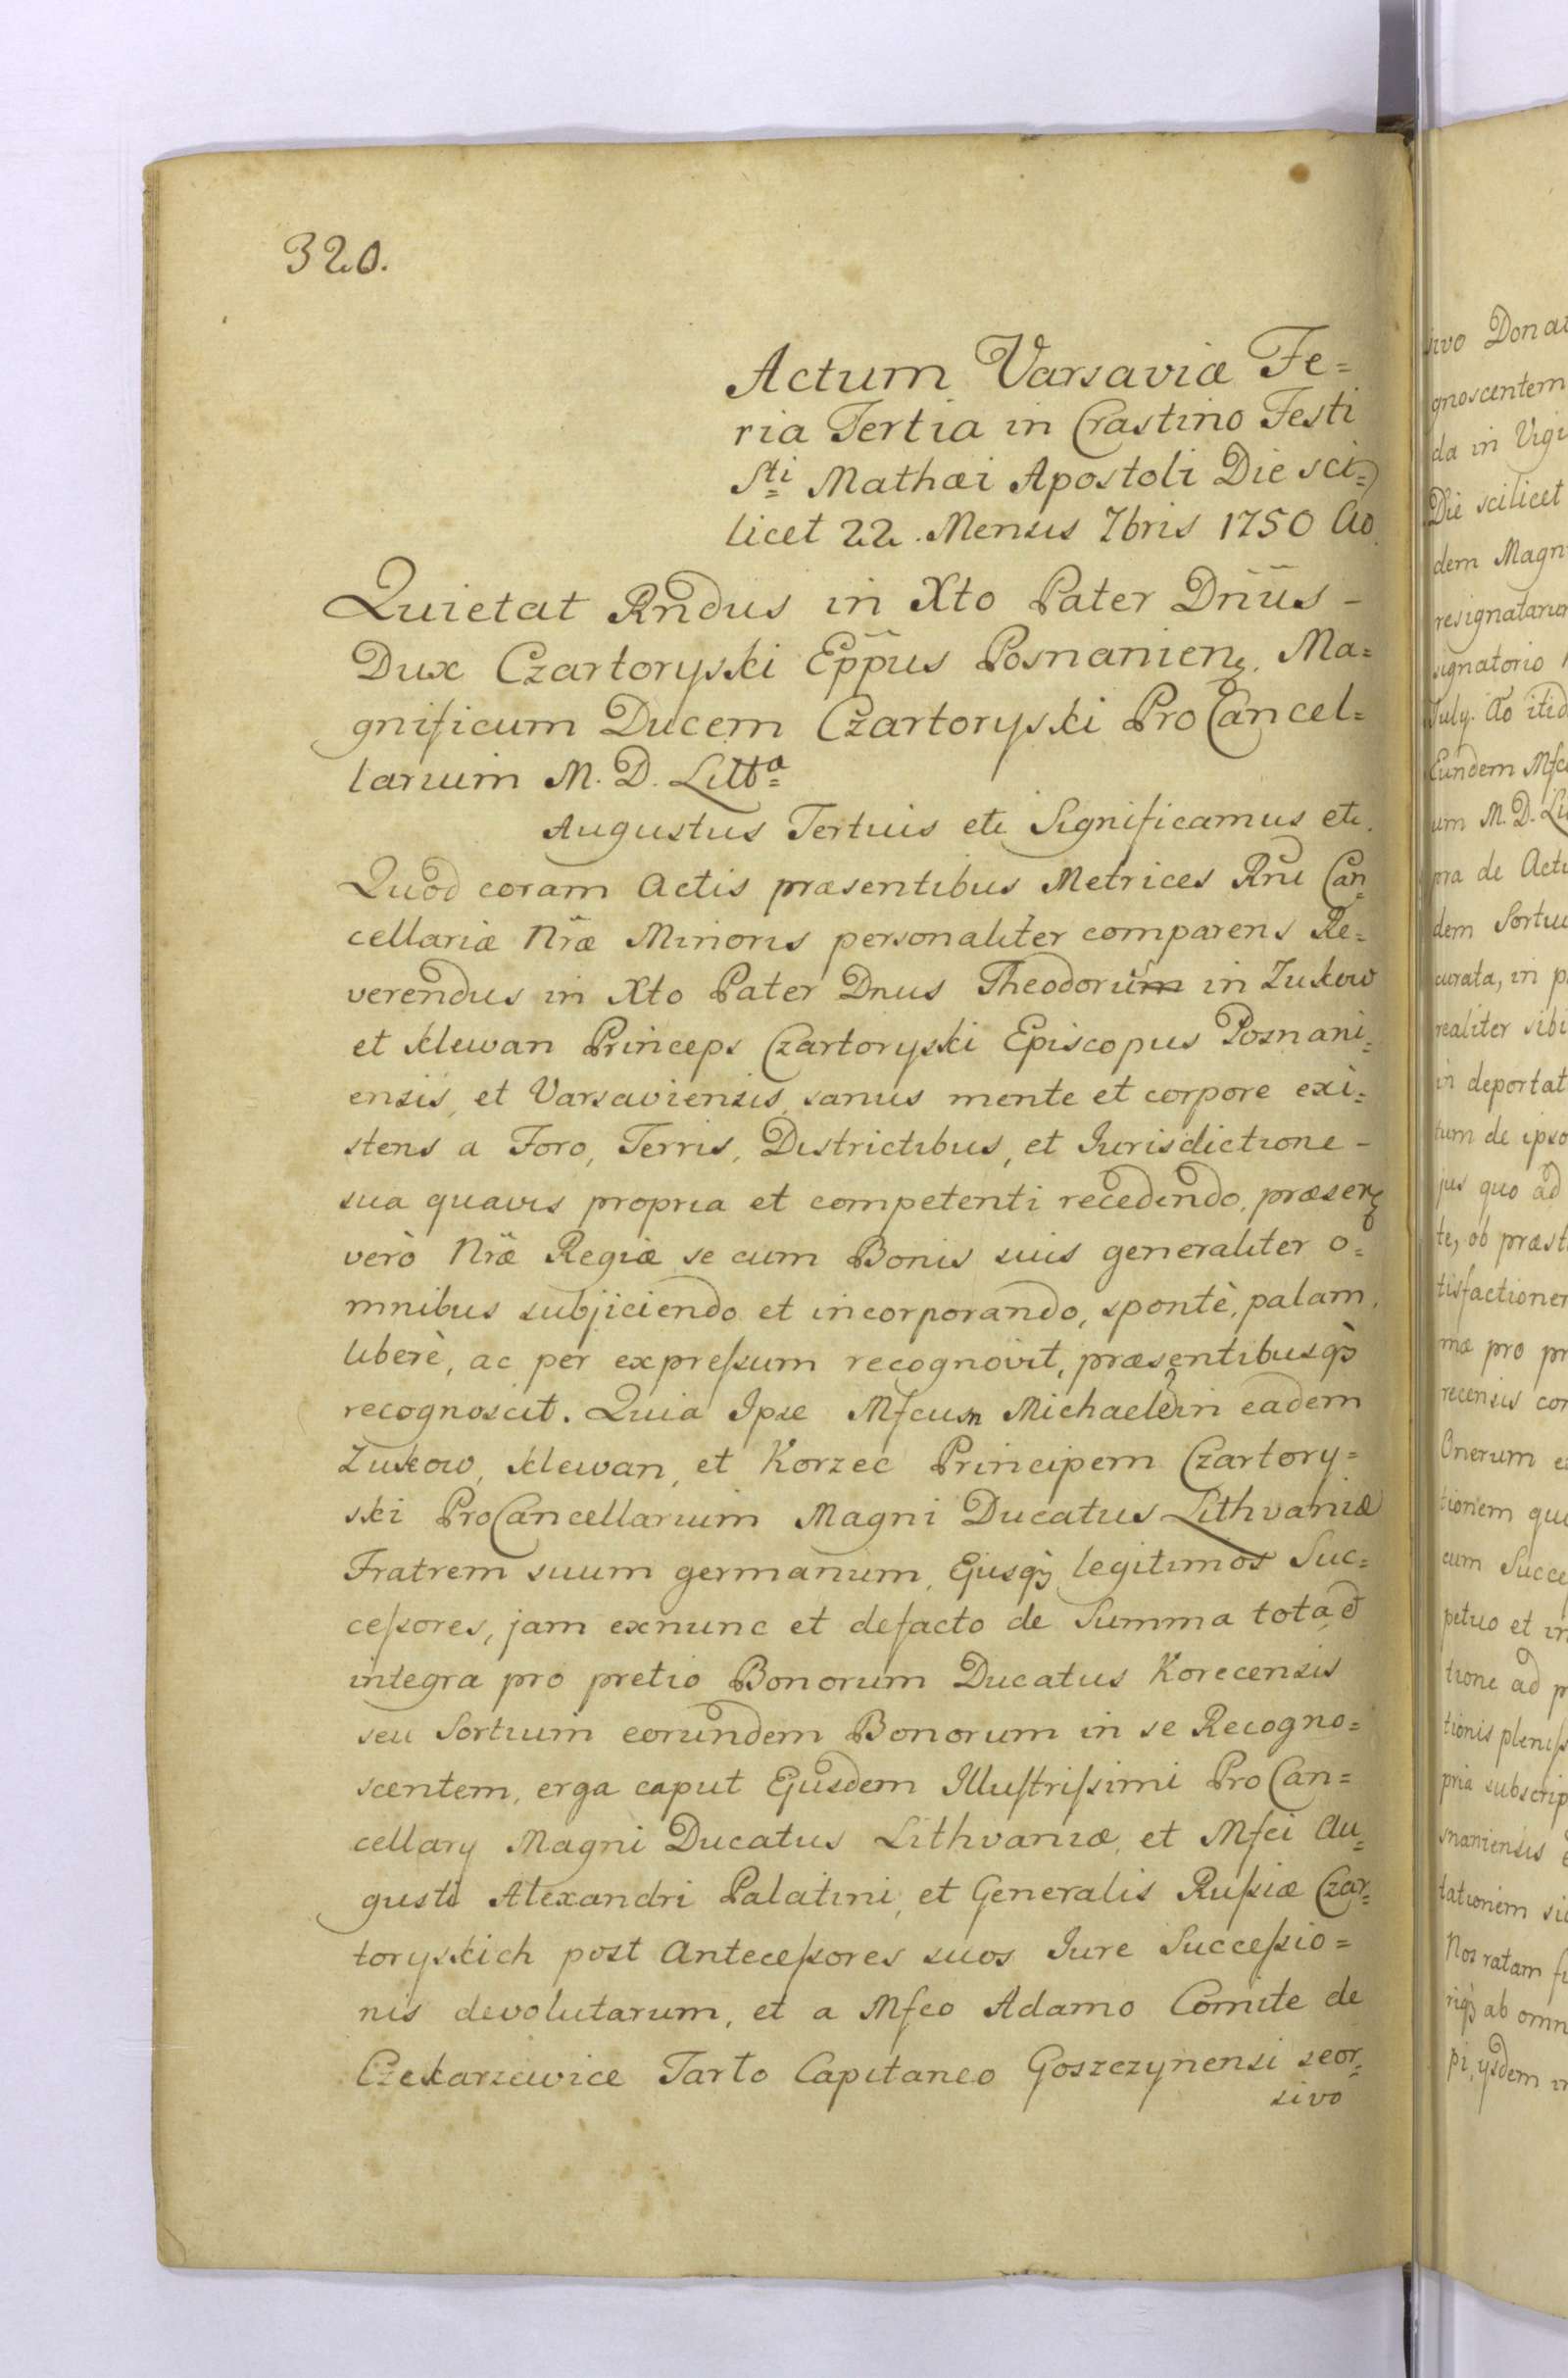 320.
Actum Varsaviæ Fe=
ria Tertia in Crastino Festi
Sti Mathæi Apostoli Die sci=
licet 22. Mensis 7bris 1750 Ao
Quietat Rndus in Xto Pater Dnus -
Dux Czartoryski Eppus Posnanien. Ma=
gnificum Ducem Czartoryski ProCancel=
larium M. D. Litta
Augustus Tertius etc Significamus etc.
Quod coram Actis præsentibus Metrices Rni Can=
cellariæ Nræ Minoris personaliter comparens Re=
verendus in Xto Pater Dnus Theodorus in Zukow
et Klewan Princeps Czartoryski Episcopus Poznani=
ensis, et Varsaviensis, sanus mente et corpore exi=
stens a Foro, Terris, Districtibus, et Iurisdictione -
sua quavis propria et competenti recedendo, præsen
verò Nræ Regiæ se cum Bonis suis generaliter o=
mnibus subjiciendo et incorporando, spontè, palam,
liberè, ac per expreſsum recognovit, præsentibusq̀
recognoscit. Quia Ipse Mfcum Michaelem in eadem
Zukow, Klewan, et Korzec Principem Czartory=
ski ProCancellarium Magni Ducatus Lithvaniæ
Fratrem suum germanum, Ejusq̀ legitimos Suc=
ceſsores, jam exnunc et defacto de Summa tota, et
integra pro pretio Bonorum Ducatus Korecensis
seu Sortium eorundem Bonorum in se Recogno=
scentem, erga caput Ejusdem Illuſtriſsimi ProCan=
cellary Magni Ducatus Lithvaniæ, et Mfci Au=
gusti Alexandri Palatini, et Generalis Ruſsiæ Czar=
toryskich post Anteceſsores suos Iure Succeſsio=
nis devolutarum, et a Mfco Adamo Comite de
Czekarzewice Tarło Capitaneo Goszczynensi seor=
sivo
ivo Dona
gnoscentem
da in Vigi
Die scilicet
dem Magn
resignatario
signatorio
July. Ao itid
Eundem Mfc
um M. D. Li
pra de Actu
dem Sortiu
curata, in p
realiter sibi
in deportat
tum de ipso
jus quo ad
te, ob præst
tisfactionem
mæ pro pr
recensis co
Onerum e
tionem qu
cum Succe
petuo et in
tione ad p
tionis pleniſs
pria subscrip
snaniensis
tationem si
Nos ratam
riq̀ ab omn
pi, ysdem